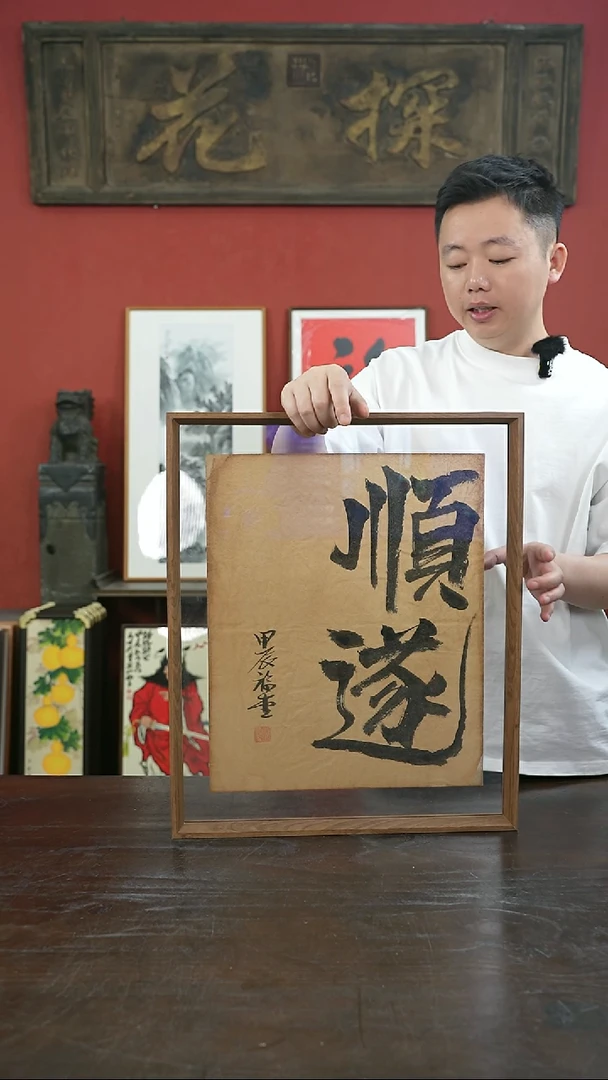 探花
順
遂
甲辰福堂